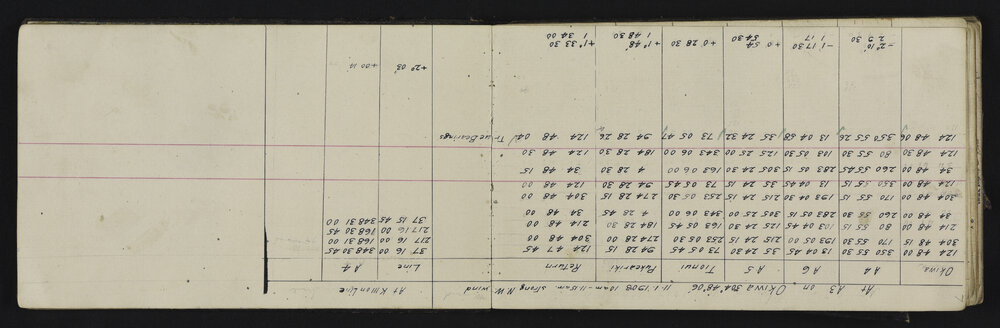 At A3 on Okiwa 304°48'06" 11.1.1908 10am-11.15am strong N.W. wind At K M on Line
Okiwa A4 A6 A5 Tionui Pukeariki Return Line A4
124 48 00 350 55 30 13 04 45 35 24 30 73 05 45 94 28 15 124 47 45 37 16 00 348 30 45
304 48 15 170 55 30 193 05 00 215 24 15 253 05 30 274 28 00 304 48 00 217 16 00 168 31 00
214 48 00 80 55 15 103 04 45 125 24 30 163 05 45 184 28 30 214 48 00 217 16 00 168 30 45
34 48 00 260 55 30 283 05 15 305 25 00 343 06 00 4 28 45 34 48 00 37 15 45 348 31 00
304 48 00 170 55 15 193 04 30 215 24 15 253 05 30 274 28 15 304 48 00
124 48 00 350 55 15 13 04 45 35 24 15 73 05 45 94 28 30 124 48 00
34 48 00 260 55 45 283 05 15 305 24 30 163 06 00 4 28 30 34 48 15
124 48 30 80 55 30 103 05 30 125 25 00 343 06 00 184 28 30 124 48 30
124 48 06 350 55 26 13 04 58 35 24 32 73 05 47 94 28 26 124 48 04 True Bearings
+2° 03' +00 14'
-2° 10' -1 17 30 +0 54 +0 28 30 +1° 48' +1° 33 30
2 9 30 1 17 54 30 1 48 30 1 34 00